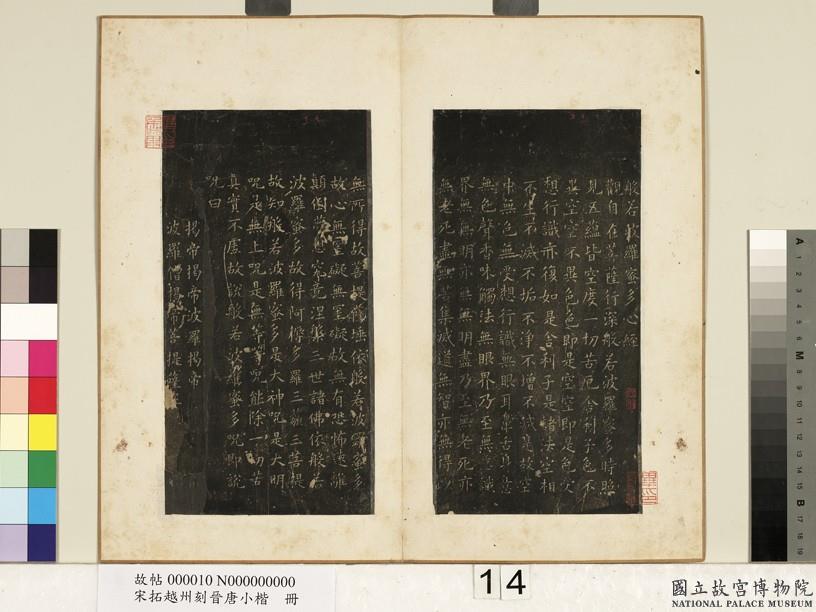 般若波羅蜜多心經
觀自在菩薩行深般若波羅蜜多時照
見五蘊皆空度一切苦厄舍利子色不
異空空不異色色即是空空即是色受
想行識亦復如是舍利子是諸法空相
不生不滅不垢不淨不增不減是故空
中無色無受想行識無眼耳鼻舌身意
無色聲香味觸法無眼界乃至無意識
界無無明亦無無明盡乃至無老死亦
無老死盡無苦集滅道無智亦無得以
無所得故菩提薩埵依般若波羅蜜多
故心無罣礙無罣礙故無有恐怖遠離
顛倒夢想究竟涅槃三世諸佛依般若
波羅蜜多故得阿耨多羅三藐三菩提
故知般若波羅蜜多是大神呪是大明
呪是無上呪是無等等呪能除一切苦
真實不虛故說般若波羅蜜多呪即說
呪曰
揭帝揭帝波羅揭帝
波羅僧揭帝菩提薩
故帖 000010 N000000000
宋拓越州刻晉唐小楷 冊
14
國立故宮博物院
NATIONAL PALACE MUSEUM
A 1 2 3 4 5 6 M 8 9 10 11 12 13 14 15 B 17 18 19